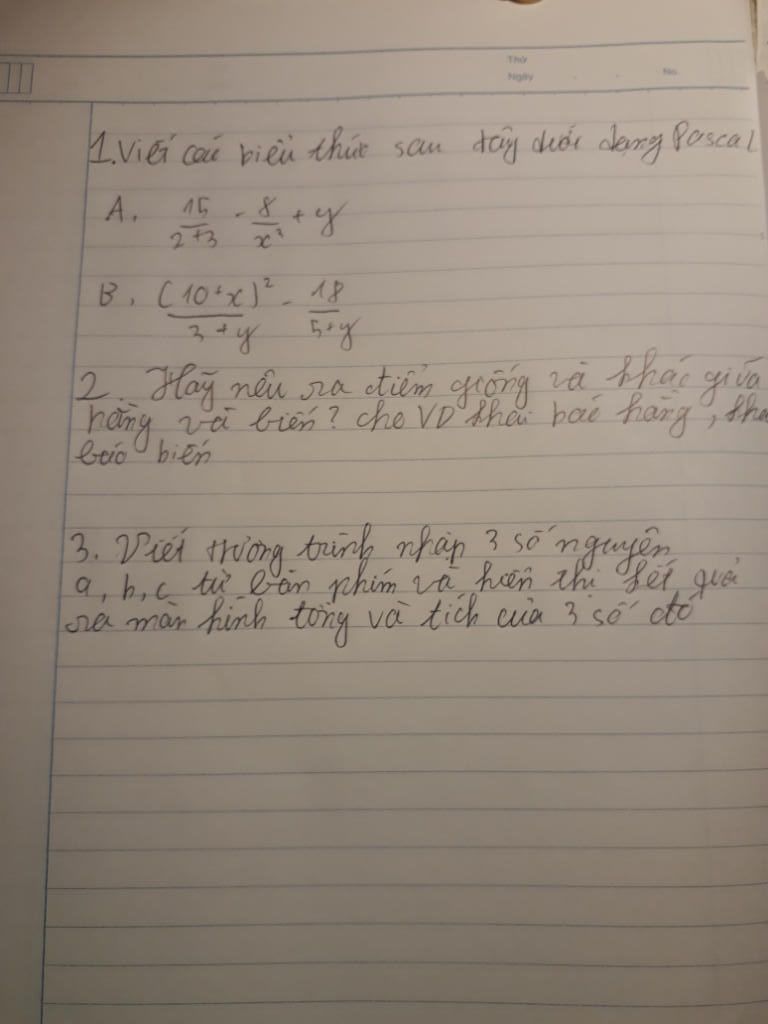 Thứ
Ngày
No.
1. Viết các biểu thức sau đây dưới dạng Pascal
A. 15/(2+3) - 8/x² + y
B. (10+x)²/(3+y) - 18/(5+y)
2. Hãy nêu ra điểm giống và khác giữa
hằng và biến? cho VD khai báo hằng, kha
báo biến
3. Viết trương trình nhập 3 số nguyên
a, b, c từ bàn phím và hiển thị kết quả
ra màn hình tổng và tích của 3 số đó